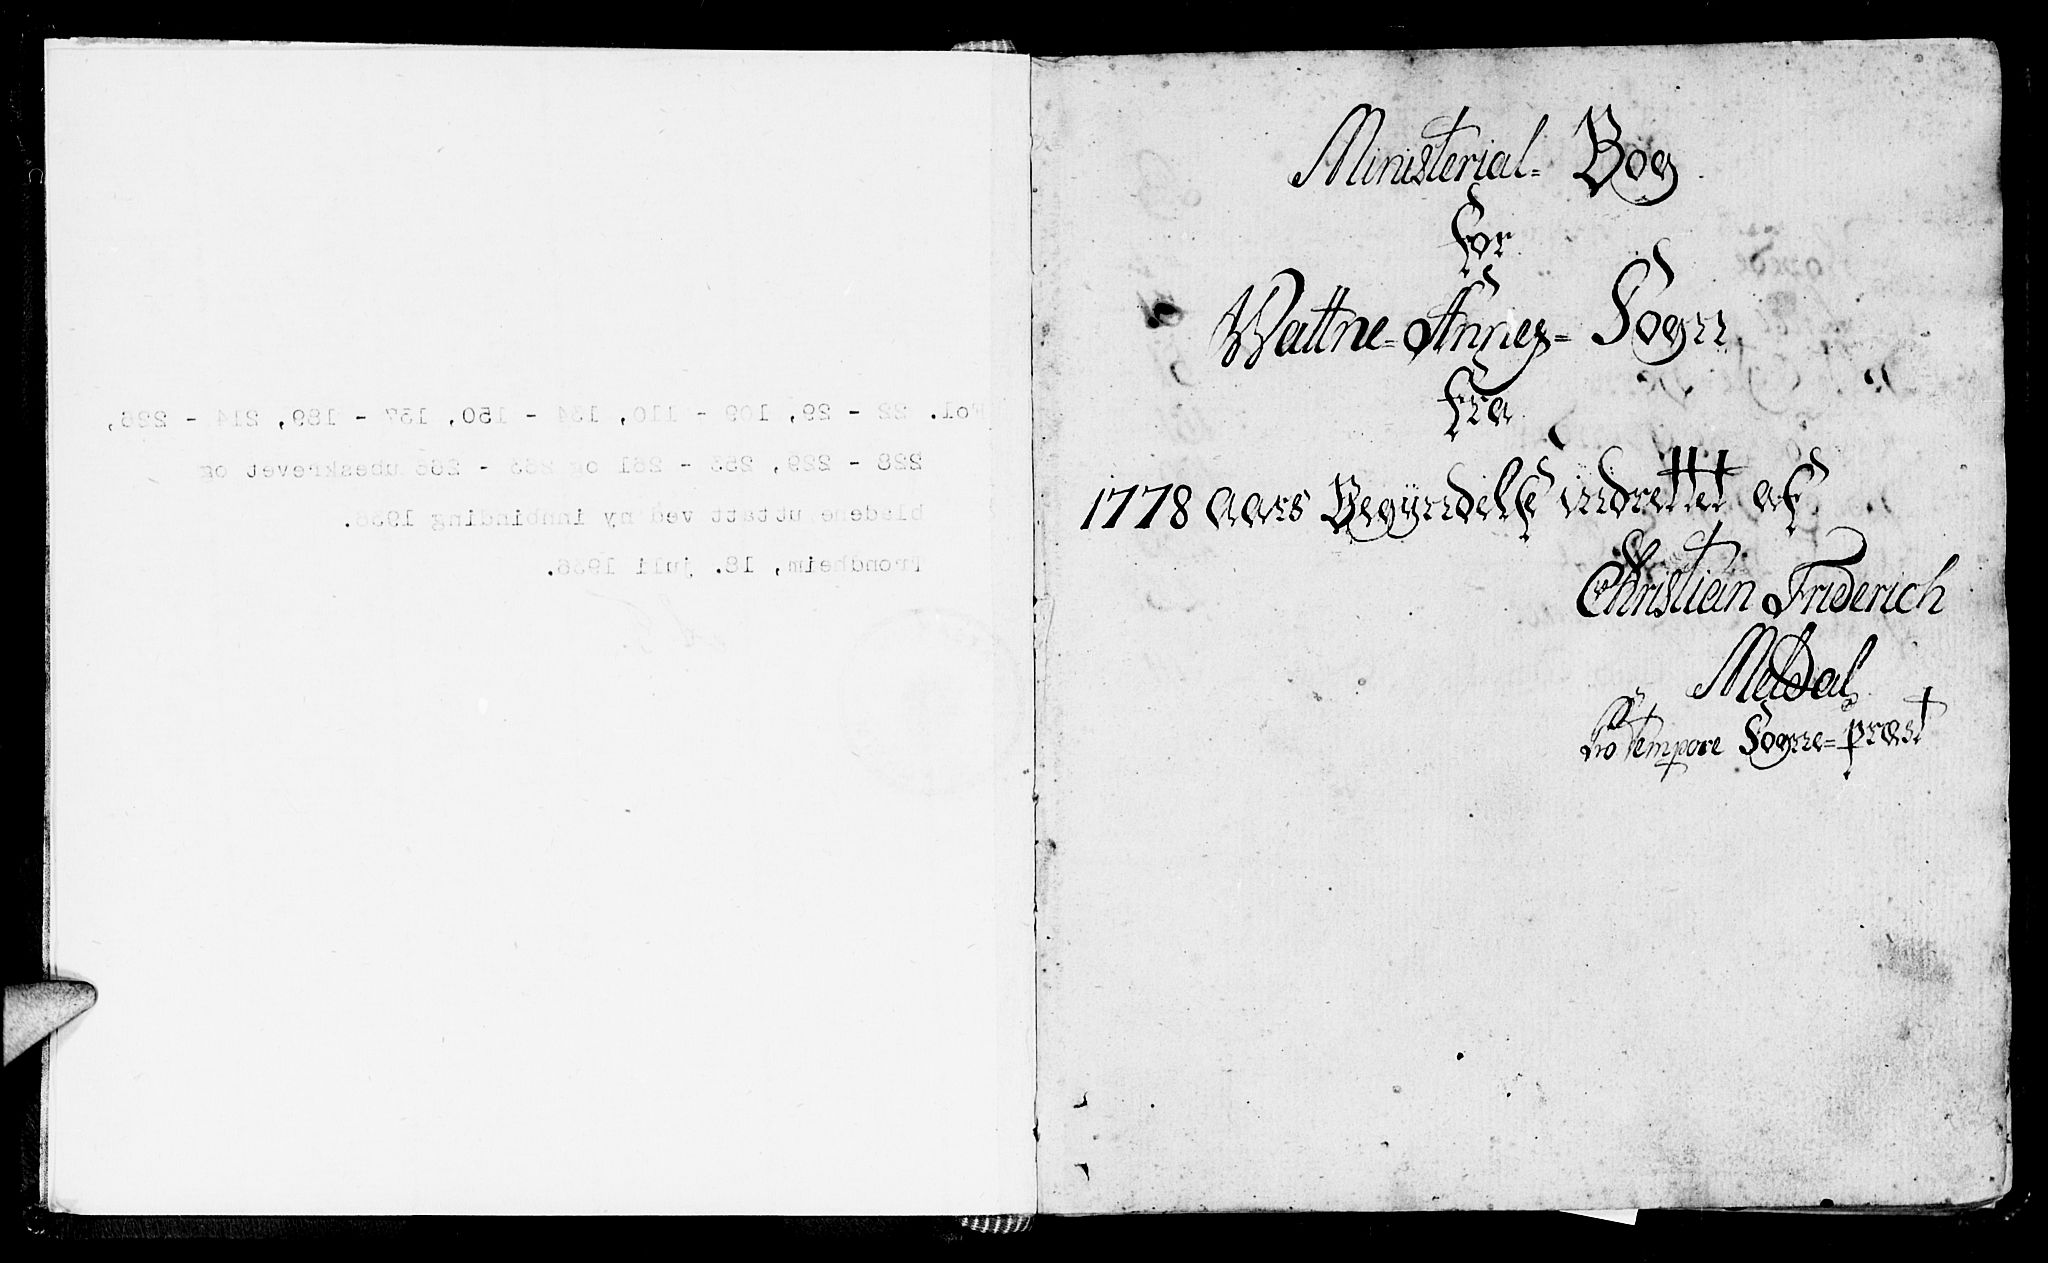 Fol. 22 - 29, 109 - 110, 134 - 150, 187 - 189, 214 - 226,
228 - 229, 253 - 261 og 263 - 266 ubeskrevet og
bladene uttatt ved ny innbinding 1936.
Trondheim, 18. juli 1936.
Ministerial= Bog
for
Wattne=Annex= Sogn
fra
1778 Aars Begyndelse indrettet af
Christian Friderich
Meldal
pro tempore Sogne=præst